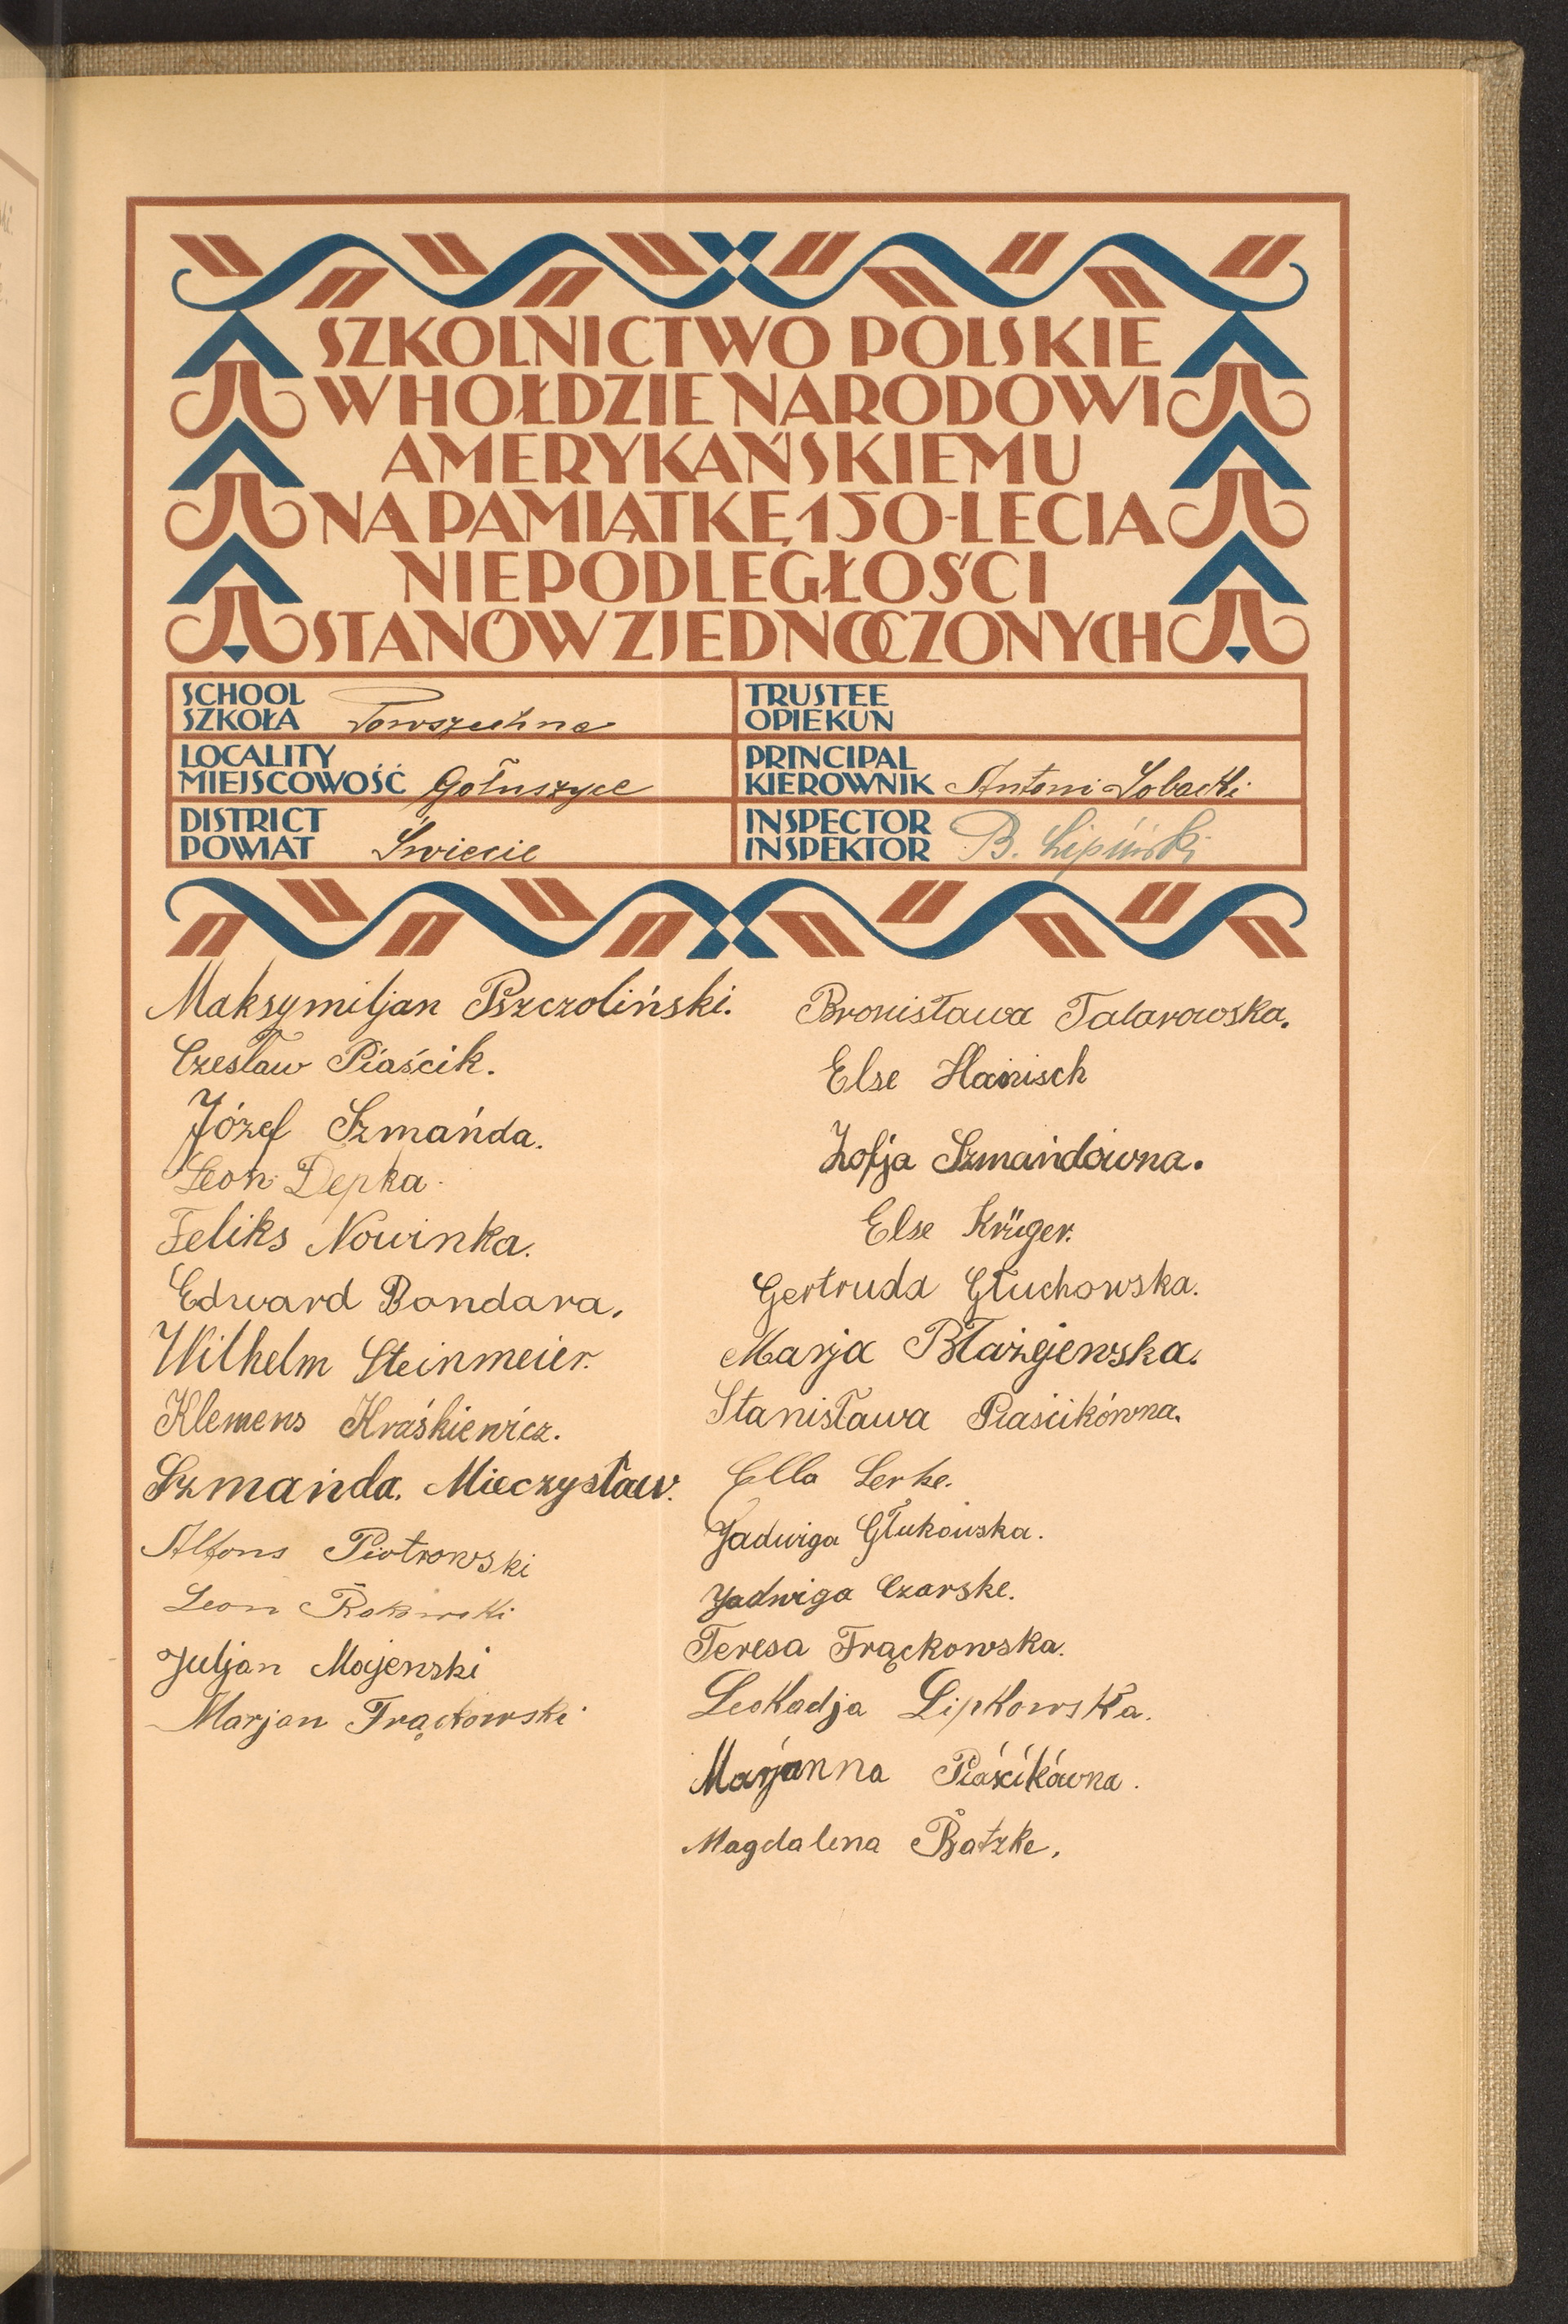 SZKOLNICTWO POLSKIE
W HOŁDZIE NARODOWI
AMERYKAŃSKIEMU
NA PAMIĄTKĘ 150-LECIA
NIEPODLEGŁOŚCI
STANÓW ZJEDNOCZONYCH
SCHOOL
SZKOŁA Powszechna
TRUSTEE
OPIEKUN
LOCALITY
MIEJSCOWOŚĆ Gołuszyce
PRINCIPAL
KIEROWNIK Antoni Sobacki
DISTRICT
POWIAT Świecie
INSPECTOR
INSPEKTOR B. Lipiński
Maksymiljan Pszczoliński.
Czesław Piaścik.
Józef Szmańda.
Leon Depka.
Feliks Nowinka.
Edward Bandara,
Wilhelm Steinmeier.
Klemens Kraśkiewicz.
Szmańda. Mieczysław.
Alfons Piotrowski
Leon
Juljan Majewski
Marjan Frąckowski
Bronisława Talarowska.
Else Hanisch
Zofja Szmańdówna.
Else Krüger.
Gertruda Głuchowska.
Marja Błażejewska.
Stanisława Piaścikówna.
Ella Lerke.
Jadwiga Głukowska.
Jadwiga Czarske.
Teresa Frąckowska.
Leokadja Lipkowska.
Marjanna Piaścikówna.
Magdalena Batzke.